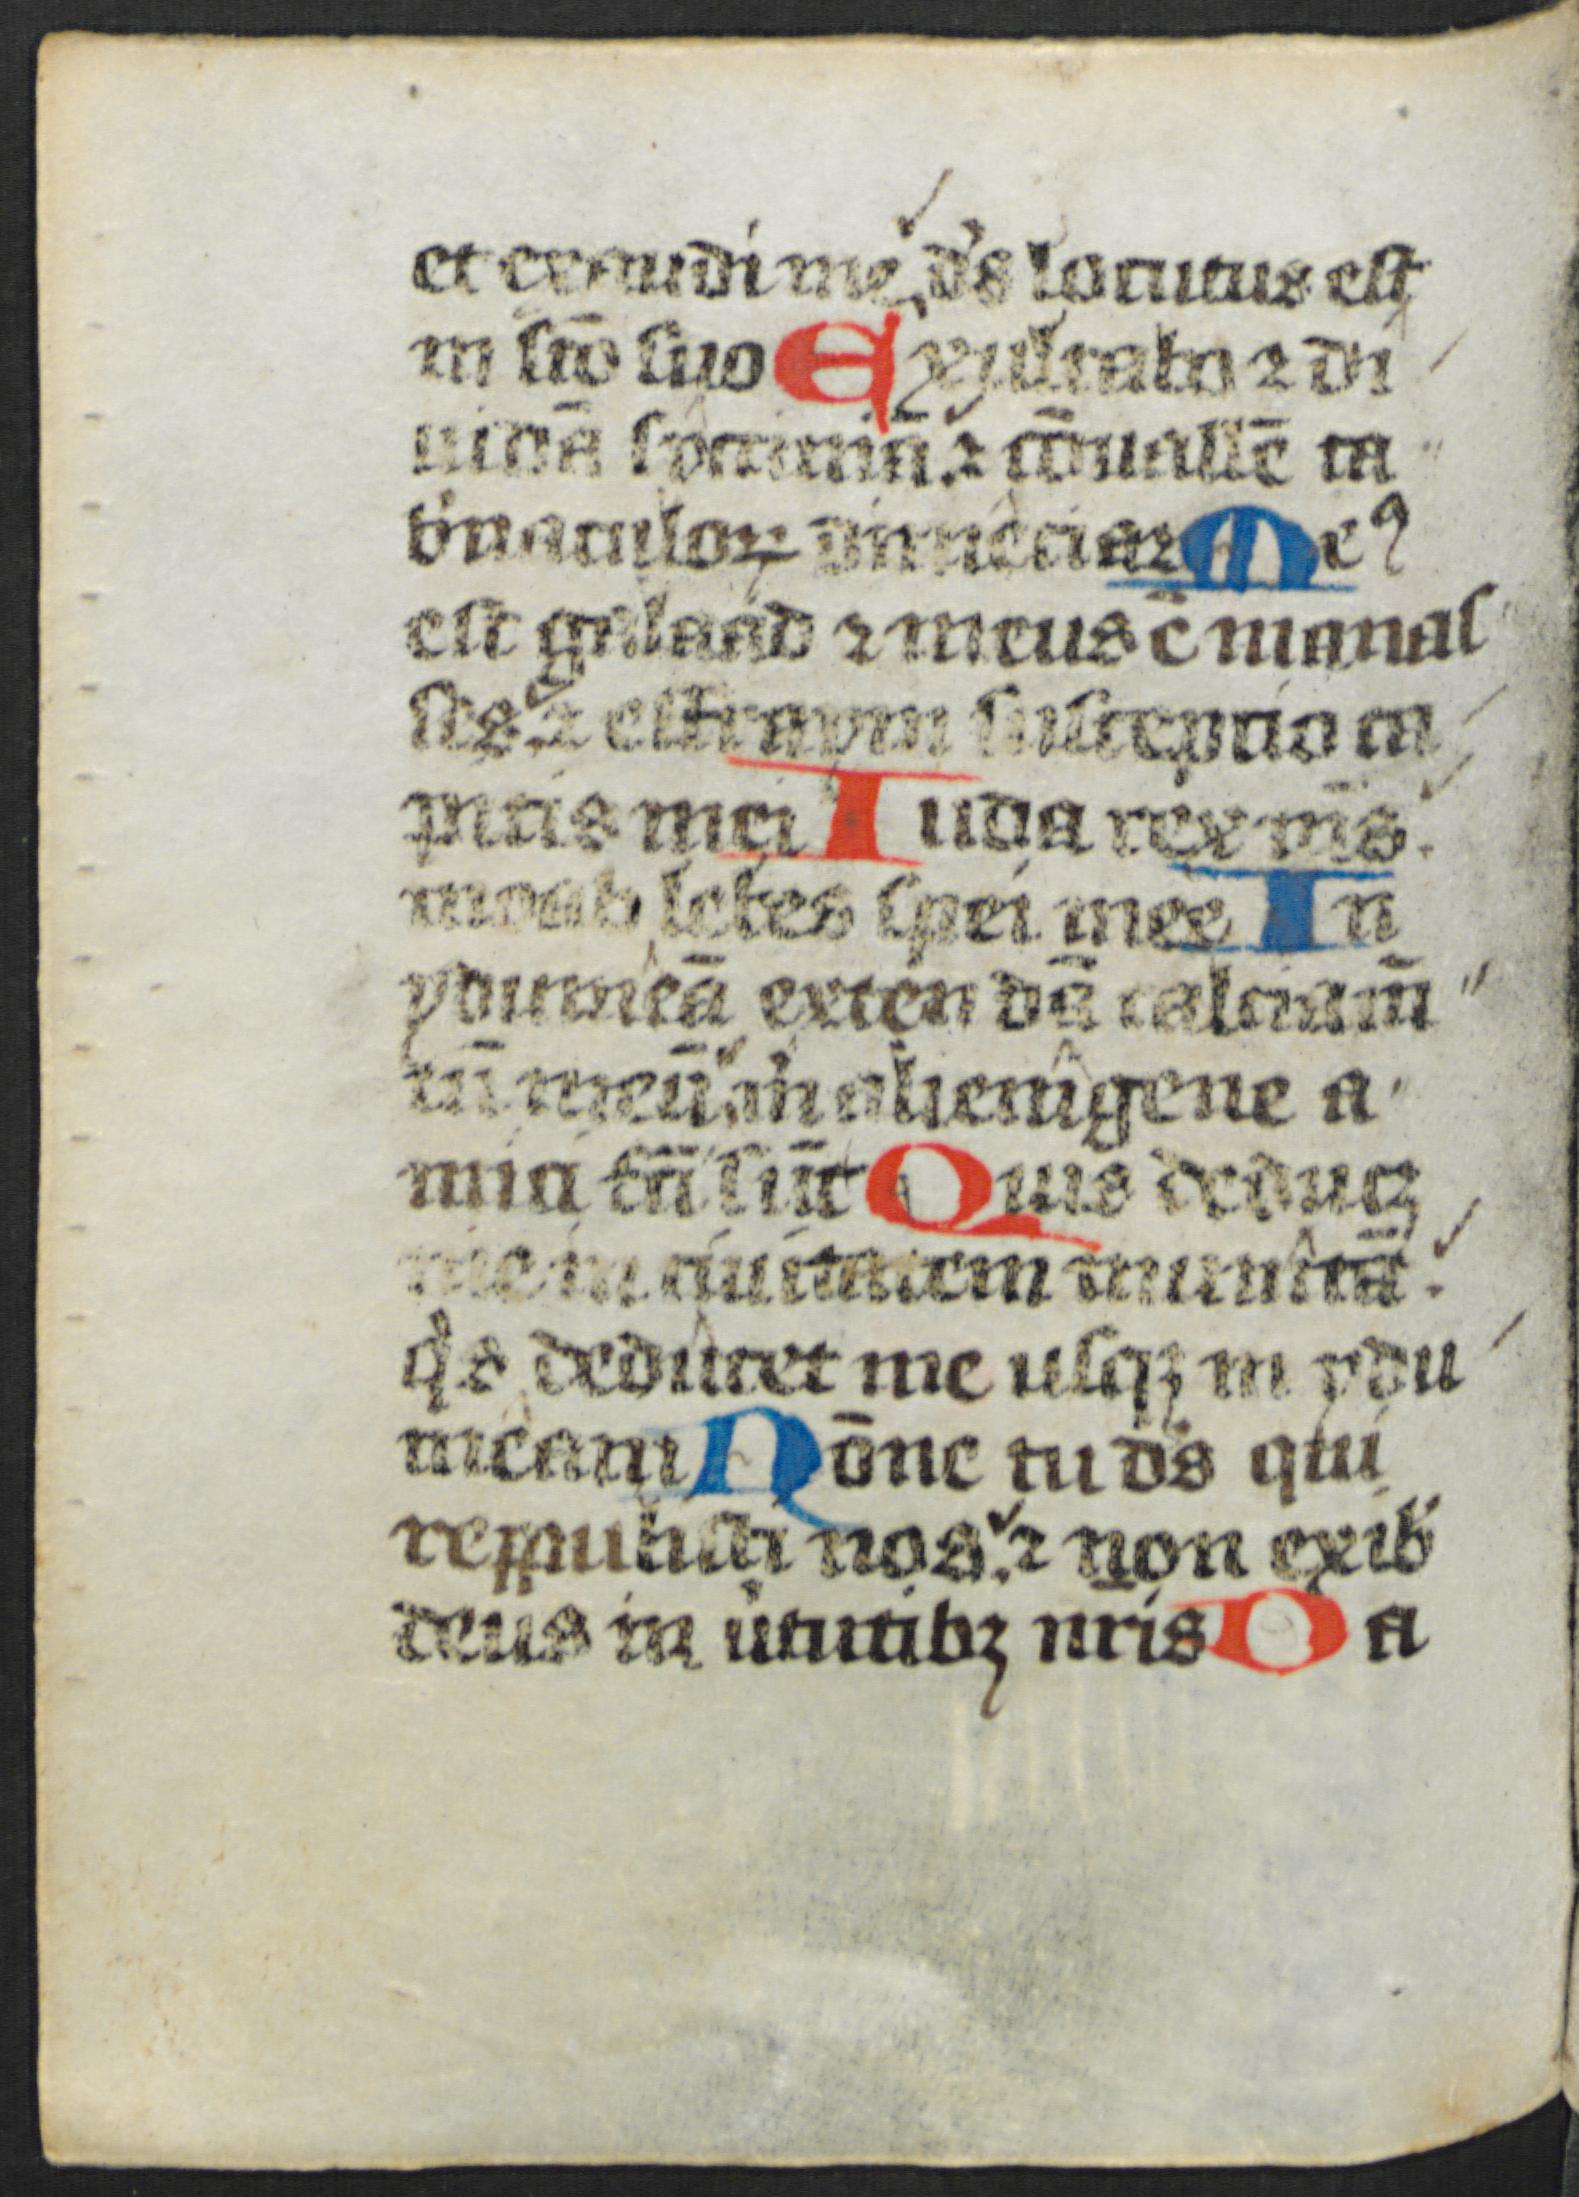 et exaudi me ds̄ locutus est
in sc̄o suo Exultabo ⁊ di
uidā sycimā. ⁊ cōuallē ta
b̓naculoꝝ dimeciar Me9
est galaad ⁊ meus ē manas
ses. ⁊ effraym susceptio ca
pitis mei Iuda rex mēs.
moab lebes spei mee In
ydumeā extendā calciam̄
tū meū. m̓ alienigene a
mici fc̄i sūt Quis deducꝫ
me in ciuitatem munitā.
q̓s deducet me usqꝫ in ydu
meam Nōne tu ds̄ qui
reppulisti nos. ⁊ non exib̓
deus in u̓tutibꝫ nr̄is Da